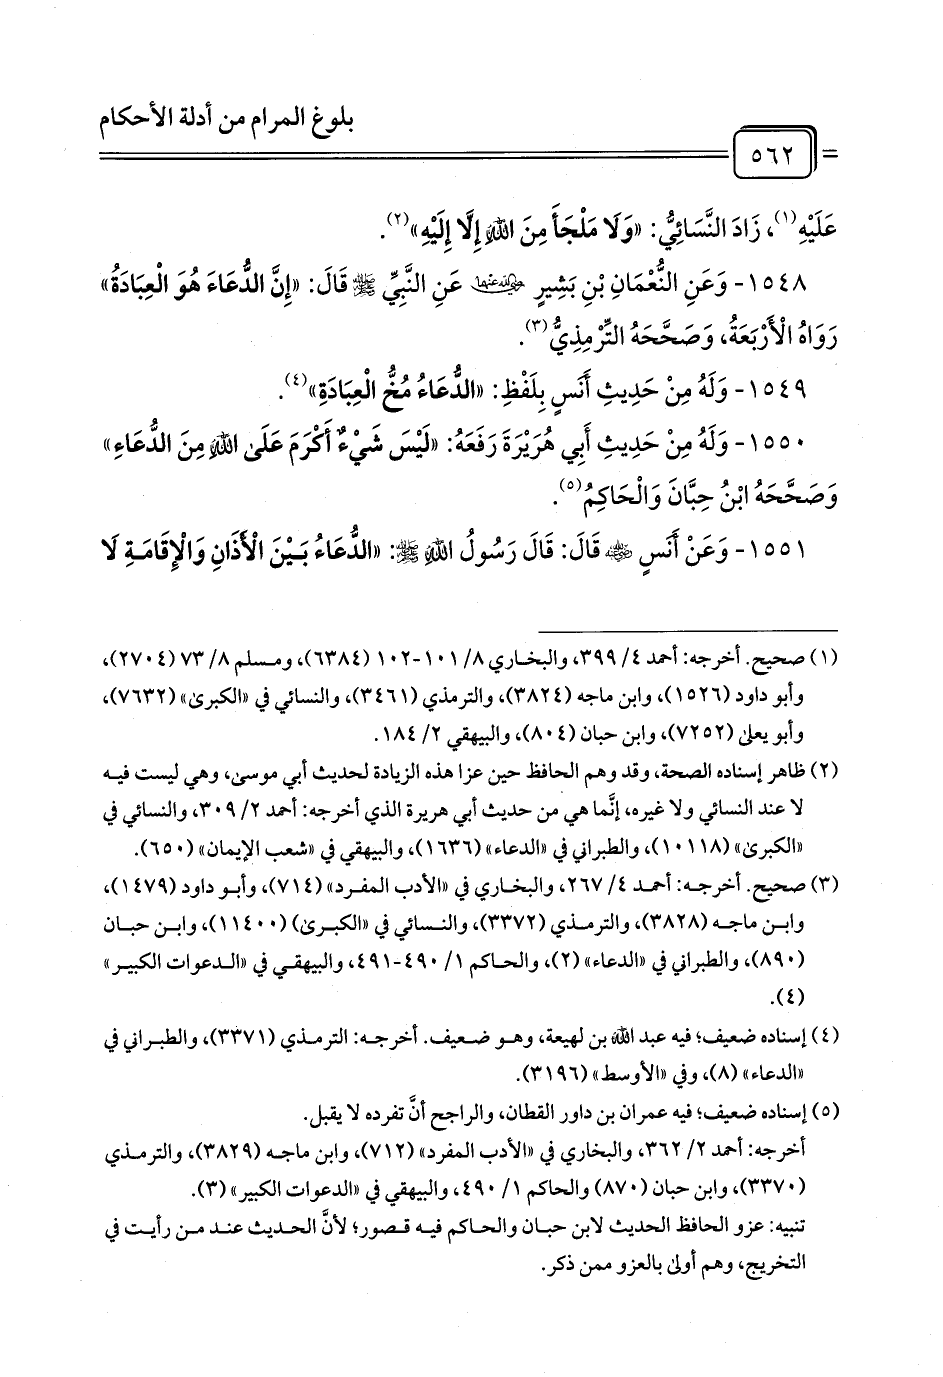 بلوغ المرام من أدلة الأحكام
٥٦٢
عَلَيْهِ(١)، زَادَ النَّسَائِيُّ: «وَلَا مَلْجَأَ مِنَ اللهِ إِلَّا إِلَيْهِ»(٢).
١٥٤٨- وَعَنِ النُّعْمَانِ بْنِ بَشِيرٍ رضي الله عنهما عَنِ النَّبِيِّ ﷺ قَالَ: «إِنَّ الدُّعَاءَ هُوَ الْعِبَادَةُ»
رَوَاهُ الْأَرْبَعَةُ، وَصَحَّحَهُ التِّرْمِذِيُّ(٣).
١٥٤٩- وَلَهُ مِنْ حَدِيثِ أَنَسٍ بِلَفْظِ: «الدُّعَاءُ مُخُّ الْعِبَادَةِ»(٤).
١٥٥٠- وَلَهُ مِنْ حَدِيثِ أَبِي هُرَيْرَةَ رَفَعَهُ: «لَيْسَ شَيْءٌ أَكْرَمَ عَلَى اللهِ مِنَ الدُّعَاءِ»
وَصَحَّحَهُ ابْنُ حِبَّانَ وَالْحَاكِمُ(٥).
١٥٥١- وَعَنْ أَنَسٍ رضي الله عنه قَالَ: قَالَ رَسُولُ اللهِ ﷺ: «الدُّعَاءُ بَيْنَ الْأَذَانِ وَالْإِقَامَةِ لَا
(١) صحيح. أخرجه: أحمد ٤/ ٣٩٩، والبخاري ٨/ ١٠١-١٠٢ (٦٣٨٤)، ومسلم ٨/ ٧٣ (٢٧٠٤)،
وأبو داود (١٥٢٦)، وابن ماجه (٣٨٢٤)، والترمذي (٣٤٦١)، والنسائي في «الكبرى» (٧٦٣٢)،
وأبو يعلى (٧٢٥٢)، وابن حبان (٨٠٤)، والبيهقي ٢/ ١٨٤.
(٢) ظاهر إسناده الصحة، وقد وهم الحافظ حين عزا هذه الزيادة لحديث أبي موسى، وهي ليست فيه
لا عند النسائي ولا غيره، إنَّما هي من حديث أبي هريرة الذي أخرجه: أحمد ٢/ ٣٠٩، والنسائي في
«الكبرى» (١٠١١٨)، والطبراني في «الدعاء» (١٦٣٦)، والبيهقي في «شعب الإيمان» (٦٥٠).
(٣) صحيح. أخرجه: أحمد ٤/ ٢٦٧، والبخاري في «الأدب المفرد» (٧١٤)، وأبو داود (١٤٧٩)،
وابن ماجه (٣٨٢٨)، والترمذي (٣٣٧٢)، والنسائي في «الكبرى) (١١٤٠٠)، وابن حبان
(٨٩٠)، والطبراني في «الدعاء» (٢)، والحاكم ١/ ٤٩٠-٤٩١، والبيهقي في «الدعوات الكبير»
(٤).
(٤) إسناده ضعيف؛ فيه عبد الله بن لهيعة، وهو ضعيف. أخرجه: الترمذي (٣٣٧١)، والطبراني في
«الدعاء» (٨)، وفي «الأوسط» (٣١٩٦).
(٥) إسناده ضعيف؛ فيه عمران بن داور القطان، والراجح أنَّ تفرده لا يقبل.
أخرجه: أحمد ٢/ ٣٦٢، والبخاري في «الأدب المفرد» (٧١٢)، وابن ماجه (٣٨٢٩)، والترمذي
(٣٣٧٠)، وابن حبان (٨٧٠) والحاكم ١/ ٤٩٠، والبيهقي في «الدعوات الكبير» (٣).
تنبيه: عزو الحافظ الحديث لابن حبان والحاكم فيه قصور؛ لأنَّ الحديث عند من رأيت في
التخريج، وهم أولى بالعزو ممن ذكر.